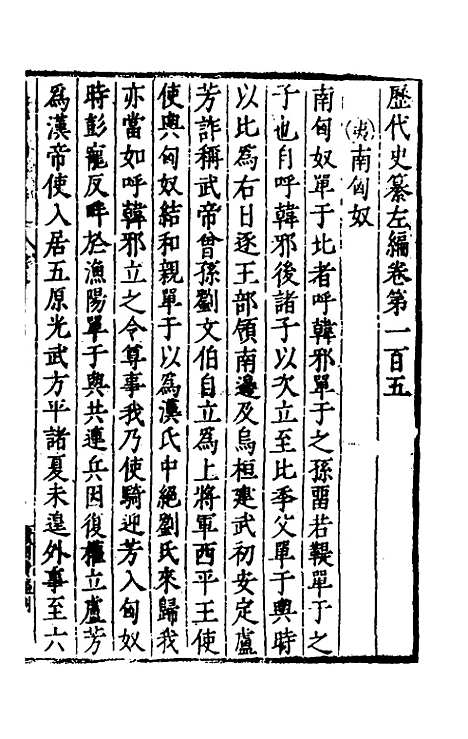 歷代史纂左編卷第一百五
(漢)南匈奴
南匈奴單于比者呼韓邪單于之孫雷若鞮單于之
子也自呼韓邪後諸子以次立至比季父單于輿時
以比為右日逐王部領南邊及烏桓建武初安定盧
芳詐稱武帝曾孫劉文伯自立為上將軍西平王使
使與匈奴結和親單于以為漢氏中絕劉氏來歸我
亦當如呼韓邪立之令尊事我乃使騎迎芳入匈奴
時彭寵反畔於漁陽單于與共連兵因復權立盧芳
為漢帝使入居五原光武方平諸夏未遑外事至六